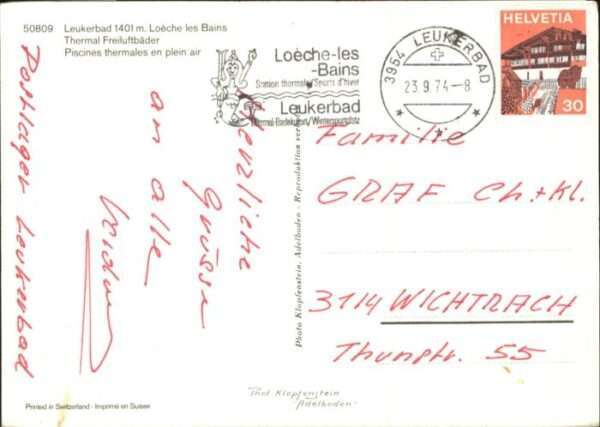 50809 Leukerbad 1401 m. Loèche les Bains
Thermal Freiluftbäder
Piscines thermales en plein air
Loèche-les
-Bains
Station thermale/Sports d'hiver
Leukerbad
Thermal-Badekurort/Wintersportplatz
3954 LEUKERBAD
23.9.74-8
HELVETIA
30
Herzliche
Grüsse
an alle
Postlager Leukerbad
Familie
GRAF Ch.+Kl.
3114 WICHTRACH
Thunstr. 55
Photo Klopfenstein, Adelboden - Reproduktion verboten
Printed in Switzerland - Imprimé en Suisse
Phot Klopfenstein
Adelboden